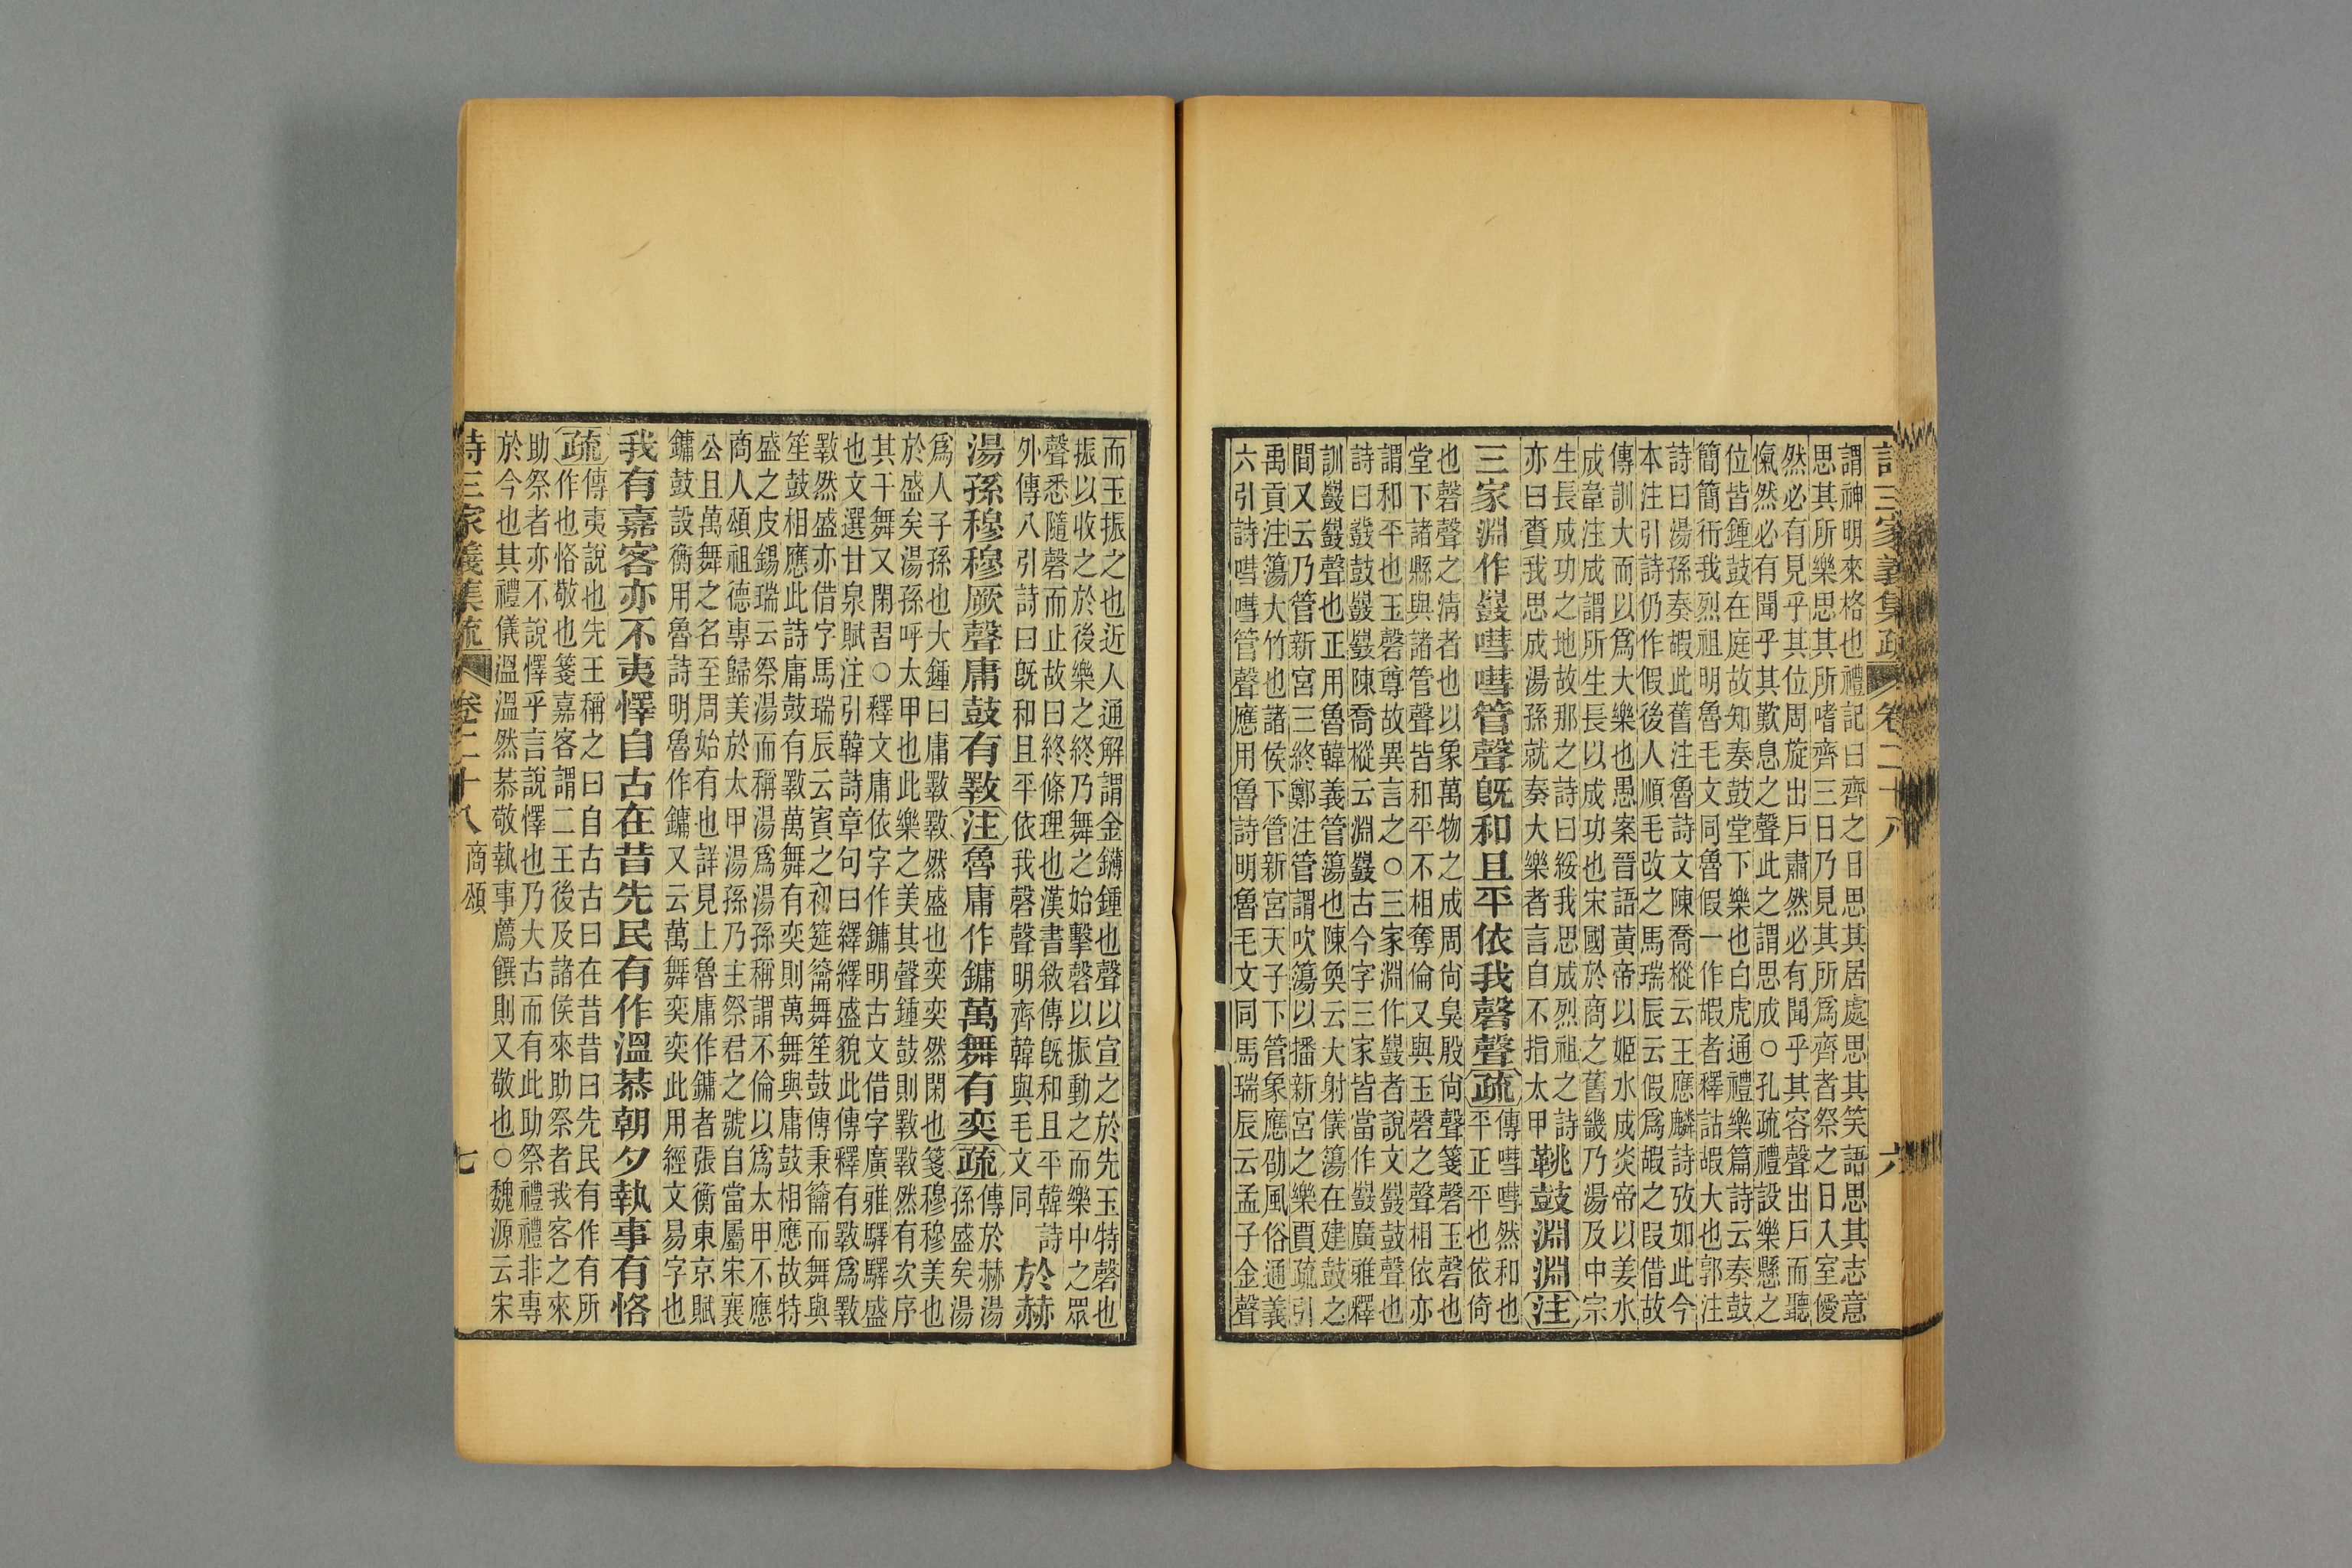 詩三家義集疏 卷二十八 六
謂神明來格也禮記曰齊之日思其居處思其笑語思其志意
思其所樂思其所嗜齊三日乃見其所爲齊者祭之日入室僾
然必有見乎其位周旋出戶肅然必有聞乎其容聲出戶而聽
愾然必有聞乎其歎息之聲此之謂思成○孔疏禮設樂懸之
位皆鍾鼓在庭故知奏鼓堂下樂也白虎通禮樂篇詩云奏鼓
簡簡衎我烈祖明魯毛文同魯假一作嘏者釋詁嘏大也郭注
詩曰湯孫奏嘏此舊注魯詩文陳喬樅云王應麟詩攷如此今
本注引詩仍作假後人順毛改之馬瑞辰云假爲嘏之叚借故
傳訓大而以爲大樂也愚案晉語黃帝以姬水成炎帝以姜水
成韋注成謂所生長以成功也宋國於商之舊畿乃湯及中宗
生長成功之地故那之詩曰綏我思成烈祖之詩
亦曰賚我思成湯孫就奏大樂者言自不指太甲
鞉鼓淵淵注
三家淵作鼘嘒嘒管聲既和且平依我磬聲疏
傳嘒嘒然和也
平正平也依倚
也磬聲之淸者也以象萬物之成周尙臭殷尙聲箋磬玉磬也
堂下諸縣與諸管聲皆和平不相奪倫又與玉磬之聲相依亦
謂和平也玉磬尊故異言之○三家淵作鼘者說文鼘鼓聲也
詩曰鼗鼓鼘鼘陳喬樅云淵鼘古今字三家皆當作鼘廣雅釋
訓鼘鼘聲也正用魯韓義管簜也陳奐云大射儀簜在建鼓之
間又云乃管新宮三終鄭注管謂吹簜以播新宮之樂賈疏引
禹貢注簜大竹也諸侯下管新宮天子下管象應劭風俗通義
六引詩嘒嘒管聲應用魯詩明魯毛文同馬瑞辰云孟子金聲
而玉振之也近人通解謂金鎛鍾也聲以宣之於先玉特磬也
振以收之於後樂之終乃舞之始擊磬以振動之而樂中之眾
聲悉隨磬而止故曰終條理也漢書敘傳旣和且平韓詩
外傳八引詩曰旣和且平依我磬聲明齊韓與毛文同
於赫
湯孫穆穆厥聲庸鼓有斁注魯庸作鏞萬舞有奕疏
傳於赫湯
孫盛矣湯
爲人子孫也大鍾曰庸斁斁然盛也奕奕然閑也箋穆穆美也
於盛矣湯孫呼太甲也此樂之美其聲鍾鼓則斁斁然有次序
其干舞又閑習○釋文庸依字作鏞明古文借字廣雅驛驛盛
也文選甘泉賦注引韓詩章句曰繹繹盛貌此傳釋有斁爲斁
斁然盛亦借字馬瑞辰云賓之初筵籥舞笙鼓傳秉籥而舞與
笙鼓相應此詩庸鼓有斁萬舞有奕則萬舞與庸鼓相應故特
盛之皮錫瑞云祭湯而稱湯爲湯孫稱謂不倫以爲太甲不應
商人頌祖德專歸美於太甲湯孫乃主祭君之號自當屬宋襄
公且萬舞之名至周始有也詳見上魯庸作鏞者張衡東京賦
鏞鼓設衡用魯詩明魯作鏞又云萬舞奕奕此用經文易字也
我有嘉客亦不夷懌自古在昔先民有作溫恭朝夕執事有恪
疏
傳夷說也先王稱之曰自古古曰在昔昔曰先民有作有所
作也恪敬也箋嘉客謂二王後及諸侯來助祭者我客之來
助祭者亦不說懌乎言說懌也乃大古而有此助祭禮禮非專
於今也其禮儀溫溫然恭敬執事薦饌則又敬也○魏源云宋
詩三家義集疏 卷二十八 商頌 七